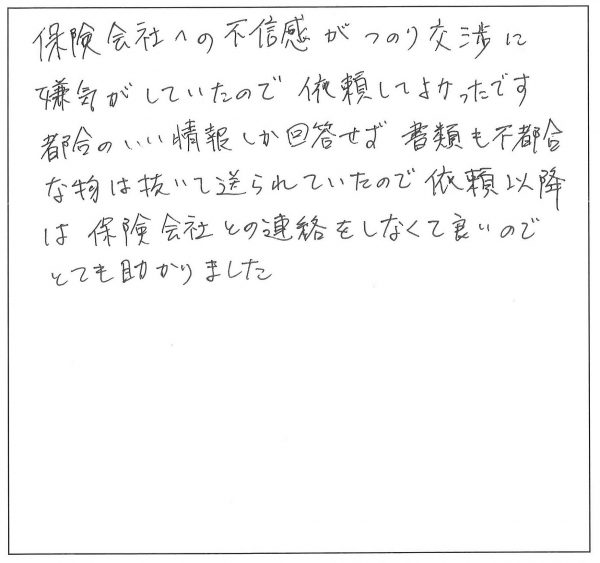 保険会社への不信感がつのり交渉に
嫌気がしていたので 依頼してよかったです
都合のいい情報しか回答せず 書類も不都合
な物は抜いて送られていたので依頼以降
は 保険会社との連絡をしなくて良いので
とても助かりました